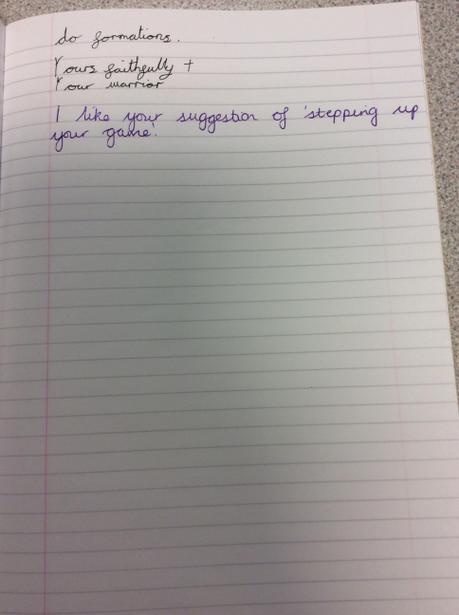 do formations.
Yours faithfully +
Your warrior
I like your suggestion of 'stepping up
your game'.